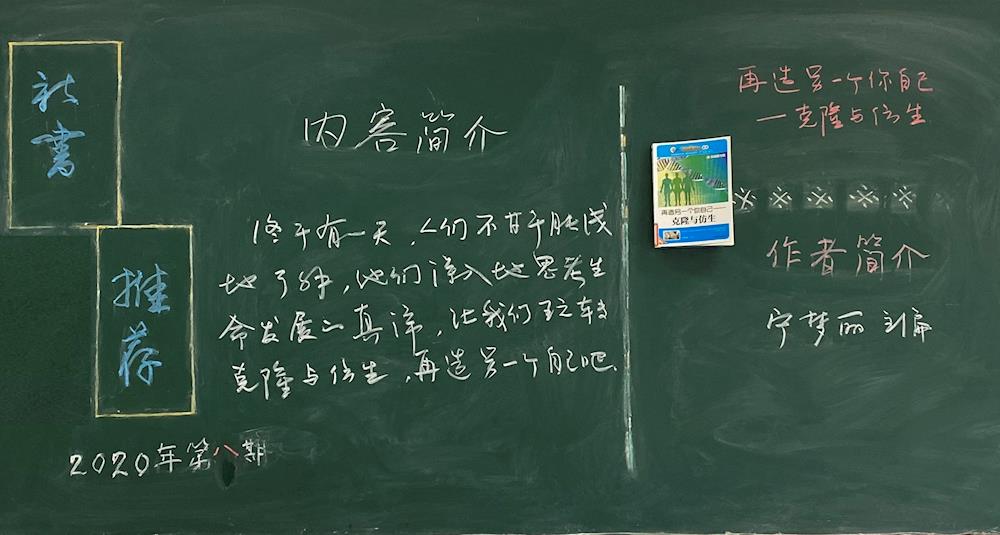 新書
推荐
2020年第八期
内容简介
终于有一天,人们不甘于肤浅
地了解,他们深入地思考生
命发展的真谛,让我们玩转
克隆与仿生,再造另一个自己吧.
再造另一个你自己
—克隆与仿生
再造另一个你自己——
克隆与仿生
※※※※※
作者简介
宁梦丽 主编